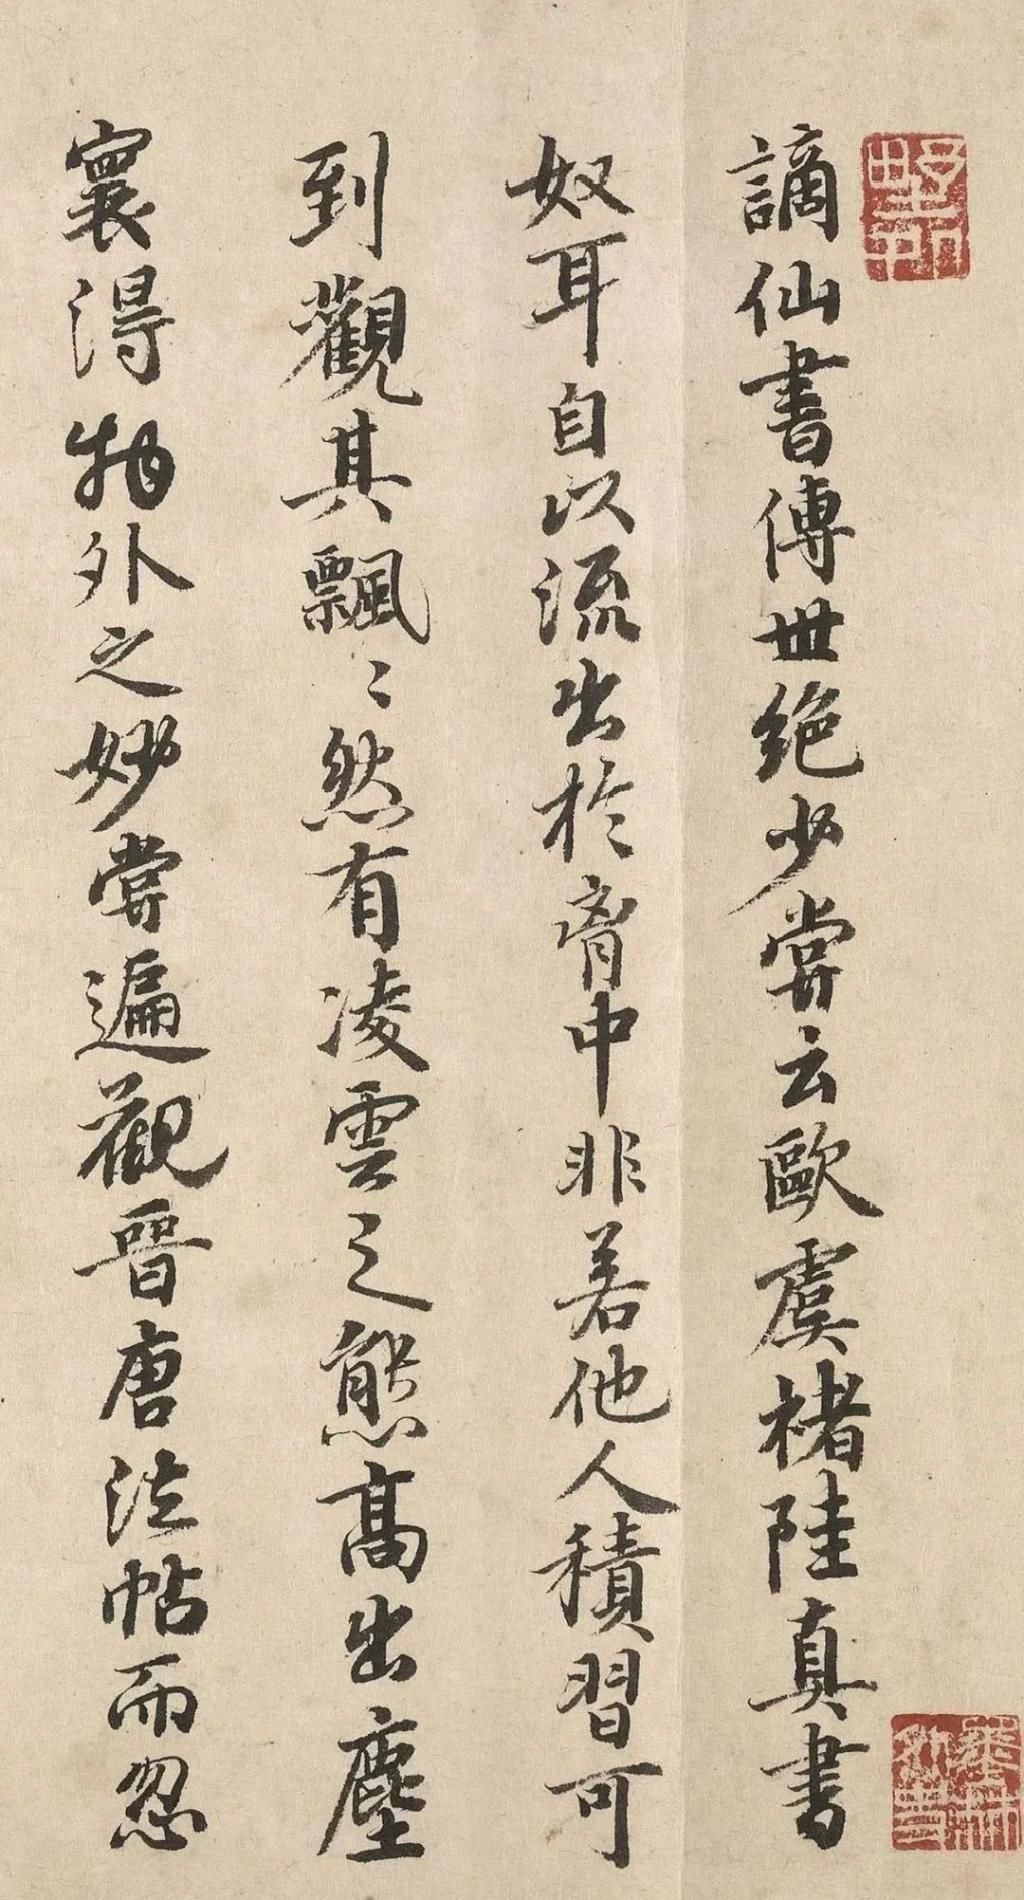 謫仙書傳世絕少嘗云歐虞褚陸真書
奴耳自以流出於胷中非若他人積習可
到觀其飄〻然有凌雲之態高出塵
寰得物外之妙嘗遍觀晉唐法帖而忽